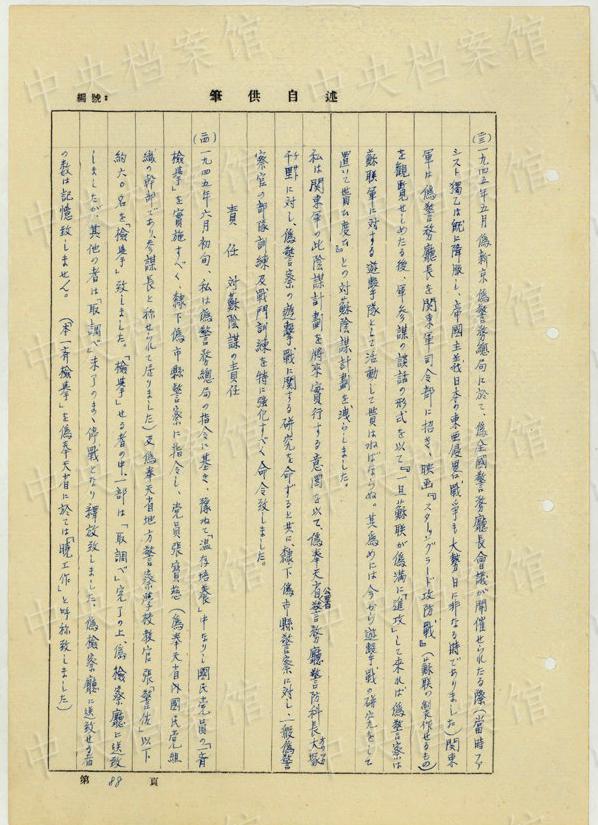 述自供筆
編號：
(三)一九四五年五月偽新京偽警務總局に於て、偽全國警務廳長會議が開催せられたる際(當時ファ
シスト獨乙は既に降服し、帝國主義日本の東亜侵畧戰争も大勢日に非なる時でありました)関東
軍は偽警務廳長を関東軍司令部に招き、映画『スターリングラード攻防戰』(蘇联の製作せるもの)
を観覧せしめたる後、軍参謀の談話の形式を以て『一旦蘇联が偽満に「進攻」して来れば偽警察は
蘇联軍に対する遊撃隊として活動して貰はねばならぬ。其為めには今から遊撃戰の研究をして
置いて貰ひ度い』との対蘇陰謀計劃を洩らしました。
私は関東軍の此陰謀計劃を将来實行する意圖を以て、偽奉天省公署警務廳警防科長大塚
千野に対し、偽警察の遊撃戰に関する研究を命ずると共に、隸下偽市縣警察に対し、一般偽警
察官の部隊訓練及戰鬥訓練を特に強化すべく命令致しました。
責任 対蘇陰謀の責任
(四)一九四五年六月初旬、私は偽警務總局の指令に基き、豫ねて「温存培養」中なりし國民党員の「一斉
檢挙」を實施すべく、隸下偽市縣警察に指令し、党員張寶慈(偽奉天省内國民党組
織の幹部であり参謀長と称せられて居りました)及偽奉天省地方警察學校教官張警佐以下
約六〇名を「檢挙」致しました。「檢挙」せる者の中、一部は「取調べ」完了の上、偽檢察廳に送致
しましたが、其他の者は「取調べ」未了のまゝ停戰となり釋放致しました、偽檢察廳に送致せる者
の数は記憶致しません。(本一斉檢挙を偽奉天省に於ては「曉工作」と呼称致しました)
第 88 頁
中央档案馆